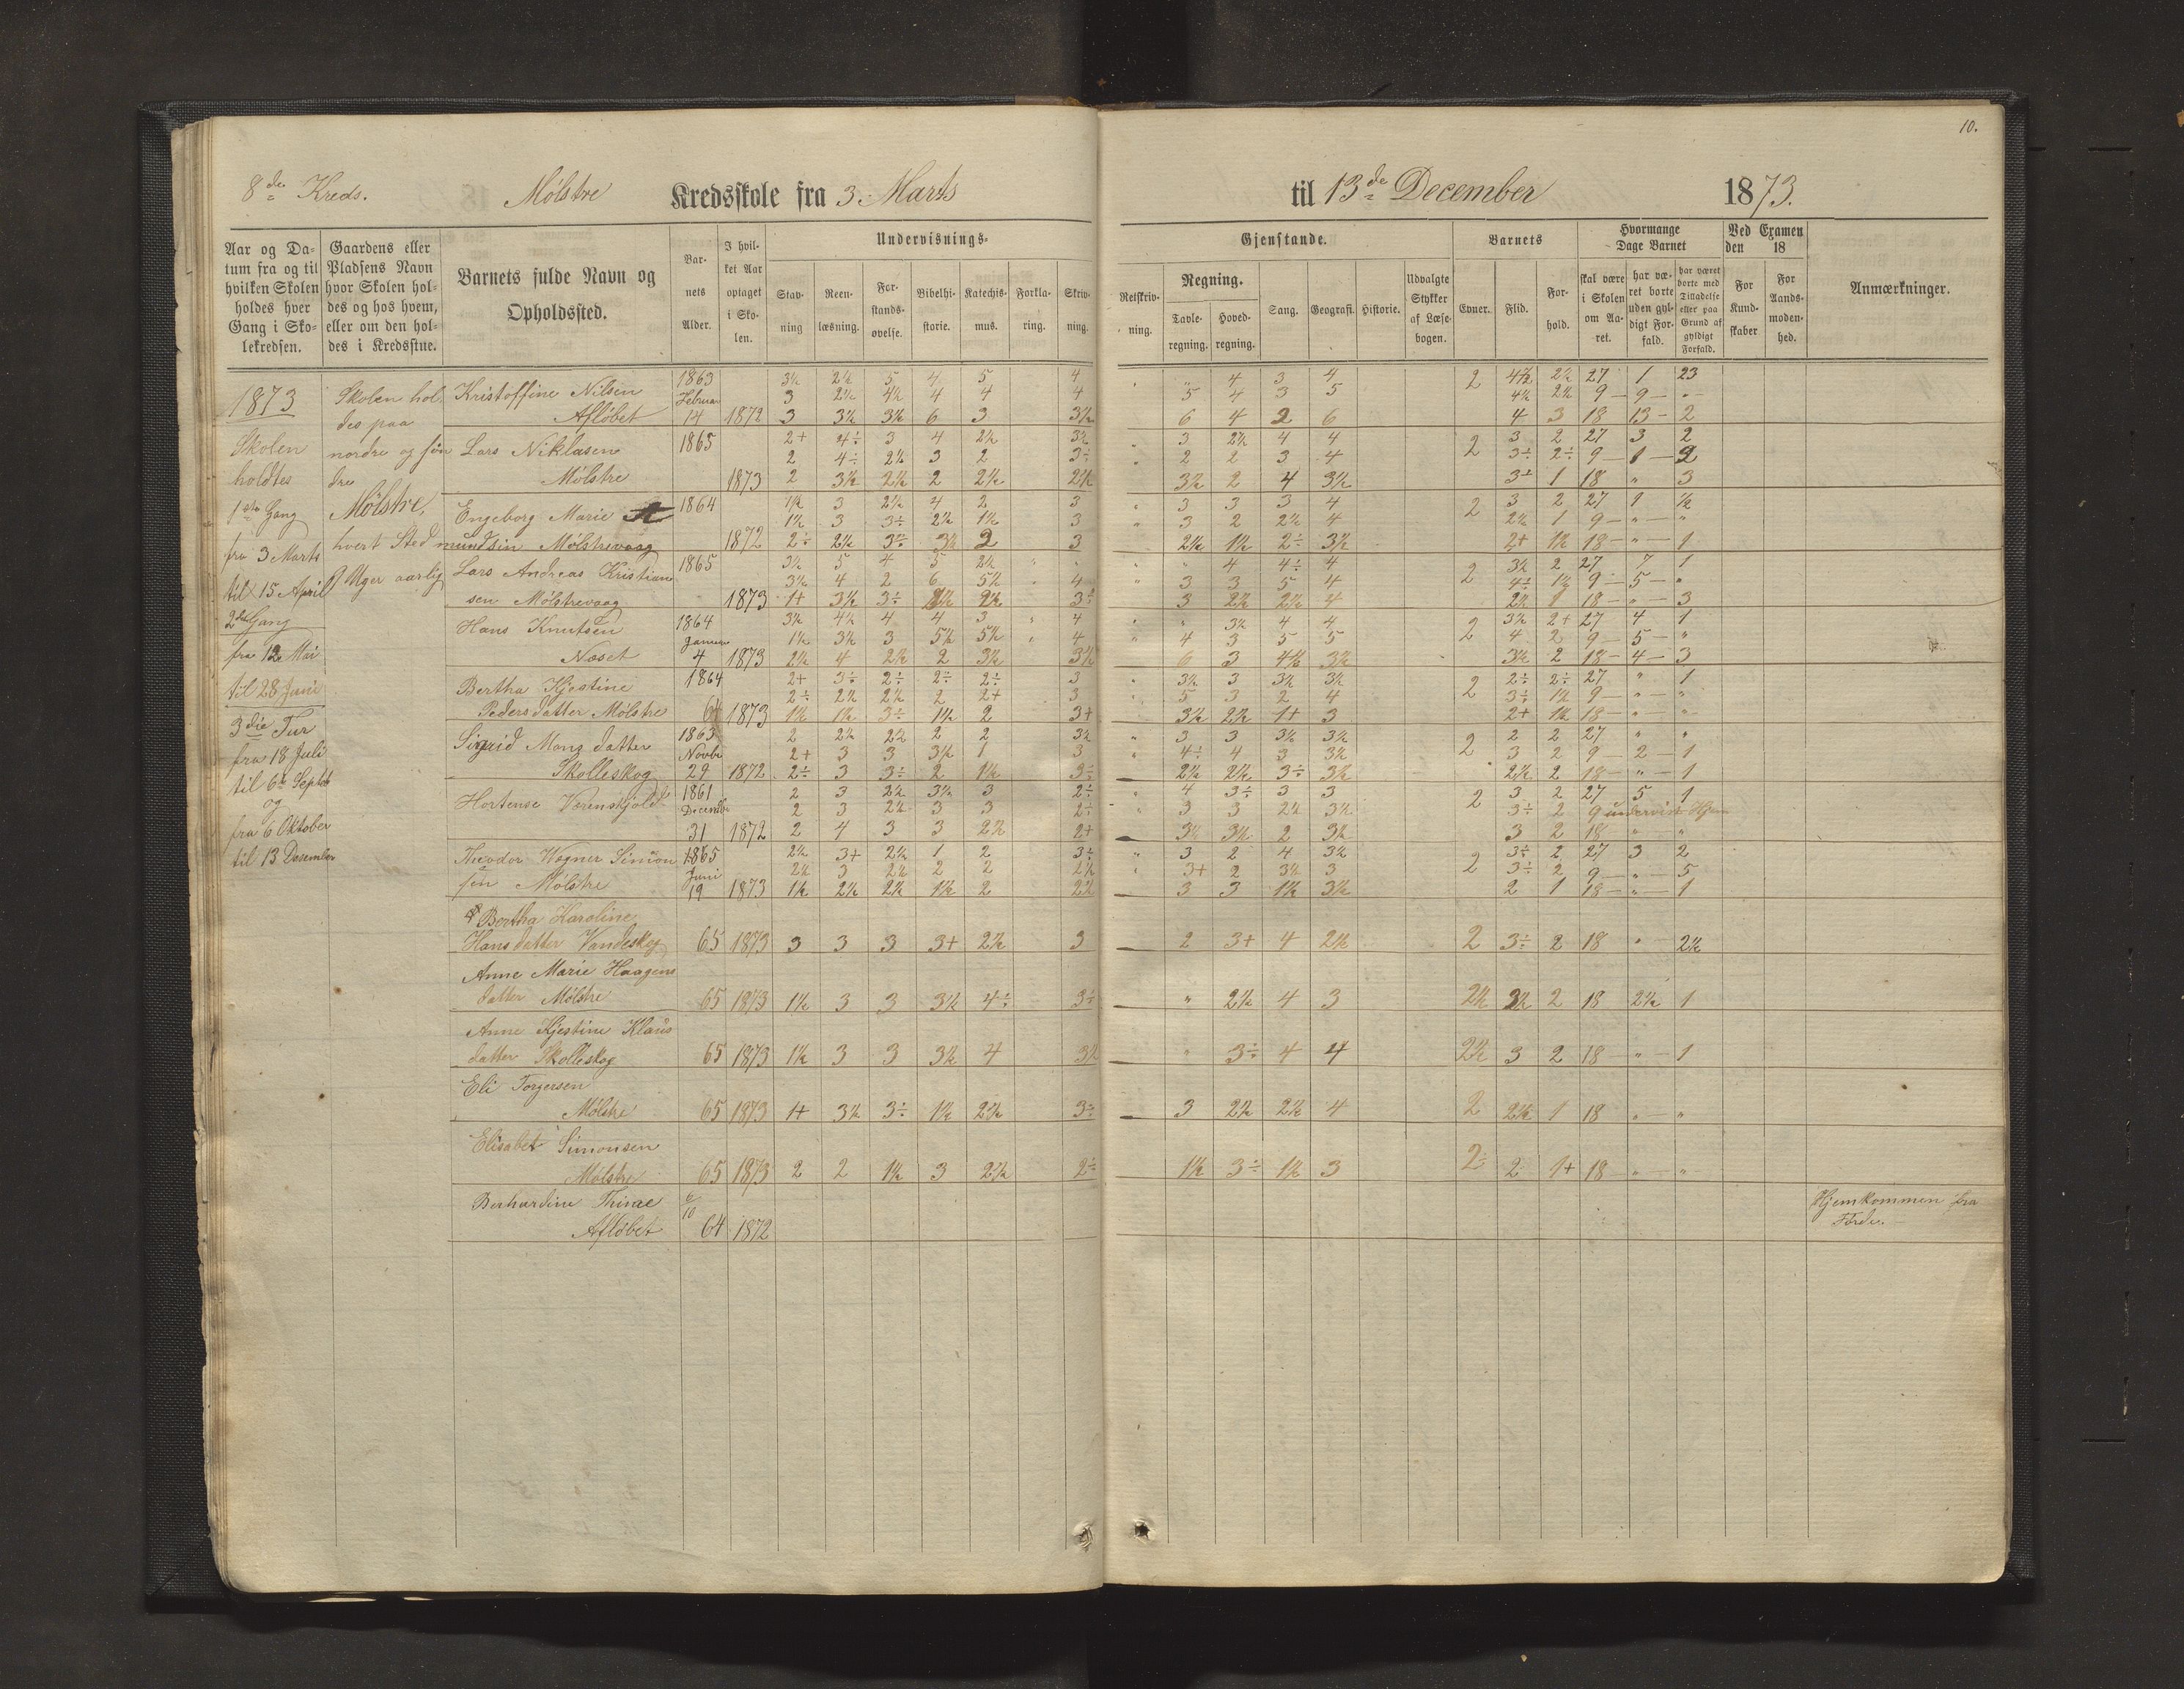 10.
8de Kreds. Mølstre Kredsskole fra 3 Marts til 13de December 1873.
Aar og Da-
tum fra og til
hvilken Skolen
holdes hver
Gang i Sko-
lekredsen.
Gaardens eller
Pladsens Navn
hvor Skolen hol-
des og hos hvem,
eller om den hol-
des i Kredsstue.
Barnets fulde Navn og
Opholdssted.
Bar-
nets
Alder.
I hvil-
ket Aar
optaget
i Sko-
len.
Undervisnings-
Stav-
ning
Reen-
læsning.
For-
stands-
øvelse.
Bibelhi-
storie.
Katechis-
mus.
Forkla-
ring.
Skriv-
ning.
Gjenstande.
Retskriv-
ning.
Regning.
Tavle-
regning.
Hoved-
regning.
Sang.
Geografi.
Historie.
Udvalgte
Stykker
af Læse-
bogen.
Barnets
Evner.
Flid.
For-
hold.
Hvormange
Dage Barnet
skal være
i Skolen
om Aa-
ret.
har væ-
ret borte
uden gyl-
digt For-
fald.
har været
borte med
Tilladelse
eller paa
Grund af
gyldigt
Forfald.
Ved Examen
den 18
For
Kund-
skaber
For
Aands-
moden-
hed.
Anmærkninger.
1873
Skolen
holdtes
1ste Gang
fra 3 Marts
til 15 April
2den Gang
fra 12 Mai
til 28 Juni
3die Tur
fra 18 Juli
til 6te Septbr
og
fra 6 Oktober
til 13 Desember
Skolen hol
des paa
nordre og søn
dre
Mølstre,
hvert Sted
9 Uger aarlig
Kristoffine Nilsen 1863 3½ 2½ 5 4 5 4 " 4 3 4 2 4½ 2½ 27 1 23
Februar 3 2½ 4½ 4 4 4 5 4 3 5 4½ 2½ 9 - 9 - "
Afløbet 14 1872 3 3½ 3½ 6 3 3½ 6 4 2 6 4 3 18 13 - 2
Lars Niklasen 1865 2+ 4÷ 3 4 2½ 3½ 3 2½ 4 4 2 3 2 27 3 2
2 4÷ 2½ 3 2 3÷ 2 2 3 4 3÷ 2÷ 9 - 1 - 2
Mølstre 1873 2 3½ 2½ 2 2½ 2½ 3½ 2 4 3½ 3± 1 18 " 3
Engeborg Marie A 1864 1½ 3 2½ 4 2 3 3 3 3 4 2 3 2 27 1 ½
1½ 3 3÷ 2½ 1½ 3 3 2 2½ 4 2½ 1 9 - " - "
mundsin Mølstrevaag 1872 2÷ 2½ 3÷ 3½ 2 3 2½ 1½ 2÷ 3½ 2+ 1½ 18 - " - 1
Lars Andreas Kristian 1865 3½ 5 4 5 2½ " 4 4÷ 4 2 3½ 2 27 7 1
3½ 4 2 6 5½ 4 3 3 5 4 4÷ 1½ 9 - 5 - "
sen Mølstrevaag 1873 1+ 3½ 3÷ 2½ 2½ 3÷ 3 2½ 2½ 4 2½ 1 18 - " - 3
Hans Knutsen 1864 3½ 4½ 4 4 3 4 " 3½ 4 4 2 3½ 2+ 27 4 1
Januar 1½ 3½ 3 5½ 5½ 4 4 3 5 5 4 2 9 - 5 - "
Næset 4 1873 2½ 4 2½ 2 3½ 3½ 6 3 4½ 3½ 3½ 2 18 - 4 - 3
Bertha Kjestine 1864 2+ 3÷ 2÷ 2÷ 2÷ 3 3½ 3 3½ 3½ 2 2÷ 2÷ 27 " 1
2÷ 2½ 2½ 2 2+ 3 5 3 2 4 3÷ 1½ 9 - " - "
Pedersdatter Mølstre 64 1873 1½ 1½ 3÷ 1½ 2 3+ 3½ 2½ 1+ 3 2+ 1½ 18 - " - "
Sigrid Monsdatter 1863 2 2½ 2½ 2 2 3½ 3 3 3½ 3½ 2 2 2 27 " "
Novbr 2+ 3 3 3½ 1 3 4÷ 4 3 3½ 3 2 9 - 2 - 1
Skolleskog 29 1872 2÷ 3 3÷ 2 1½ 3÷ 2½ 2½ 3÷ 3½ 2½ 2 18 - " - 1
Hortense Verenskjold 1861 2 3 2½ 3½ 3 2÷ 4 3÷ 3 3 2 3 2 27 5 1
December 2 3 2½ 3 3 2÷ 3 3 2½ 3½ 3÷ 2 9 undervist Hjem
31 1872 2 4 3 3 2½ 2+ 3½ 3½ 2 3½ 3 2 18 " "
Theodor Wagner Simon 1865 2½ 3+ 2½ 1 2 3÷ 3 2 4 3½ 2 3÷ 2 27 3 2
Juni 2½ 3 2½ 2 2 2½ 3+ 2 3½ 3 3÷ 2 9 - " - 5
sen Mølstre 19 1873 1½ 2½ 2½ 1½ 2 2½ 3 3 1½ 3½ 2 1 18 - " - 1
Bertha Karoline
Hansdatter Vandeskog 65 1873 3 3 3 3+ 2½ 3 2 3+ 4 2½ 2 3÷ 2 18 " 2½
Anne Marie Haagens
datter Mølstre 65 1873 1½ 3 3 3½ 4÷ 3÷ " 2½ 4 3 2½ 3½ 2 18 2½ 1
Anne Kjestine Klaus
datter Skolleskog 65 1873 1½ 3 3 3½ 4 3½ " 3÷ 4 4 2½ 3 2 18 - " - 1
Eli Torgersen
Mølstre 65 1873 1+ 3½ 3÷ 1½ 2½ 3÷ 3 2½ 2½ 4 2 2½ 1 18 " - "
Elisabet Simonsen
Mølstre 65 1873 2 2 1½ 3 2½ 2÷ 1½ 3÷ 1½ 3 2÷ 2 1+ 18 - " - "
Berhardine Thinae Hjemkommen fra
Afløbet 64 1872 Førder.